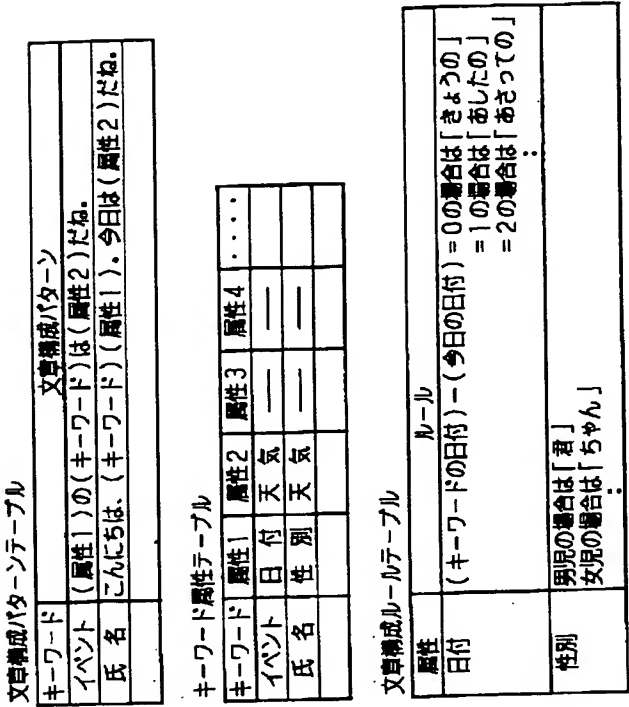 文章構成パターンテーブル
キーワード 文章構成パターン
イベント (属性1)の(キーワード)は(属性2)だね。
氏名 こんにちは、(キーワード)(属性1)。今日は(属性2)だね。
キーワード属性テーブル
キーワード 属性1 属性2 属性3 属性4 ....
イベント 日付 天気 — —
氏名 性別 天気 — —
文章構成ルールテーブル
属性 ルール
日付 (キーワードの日付)-(今日の日付)=0の場合は「きょうの」
=1の場合は「あしたの」
=2の場合は「あさっての」
:
性別 男児の場合は「君」
女児の場合は「ちゃん」
: